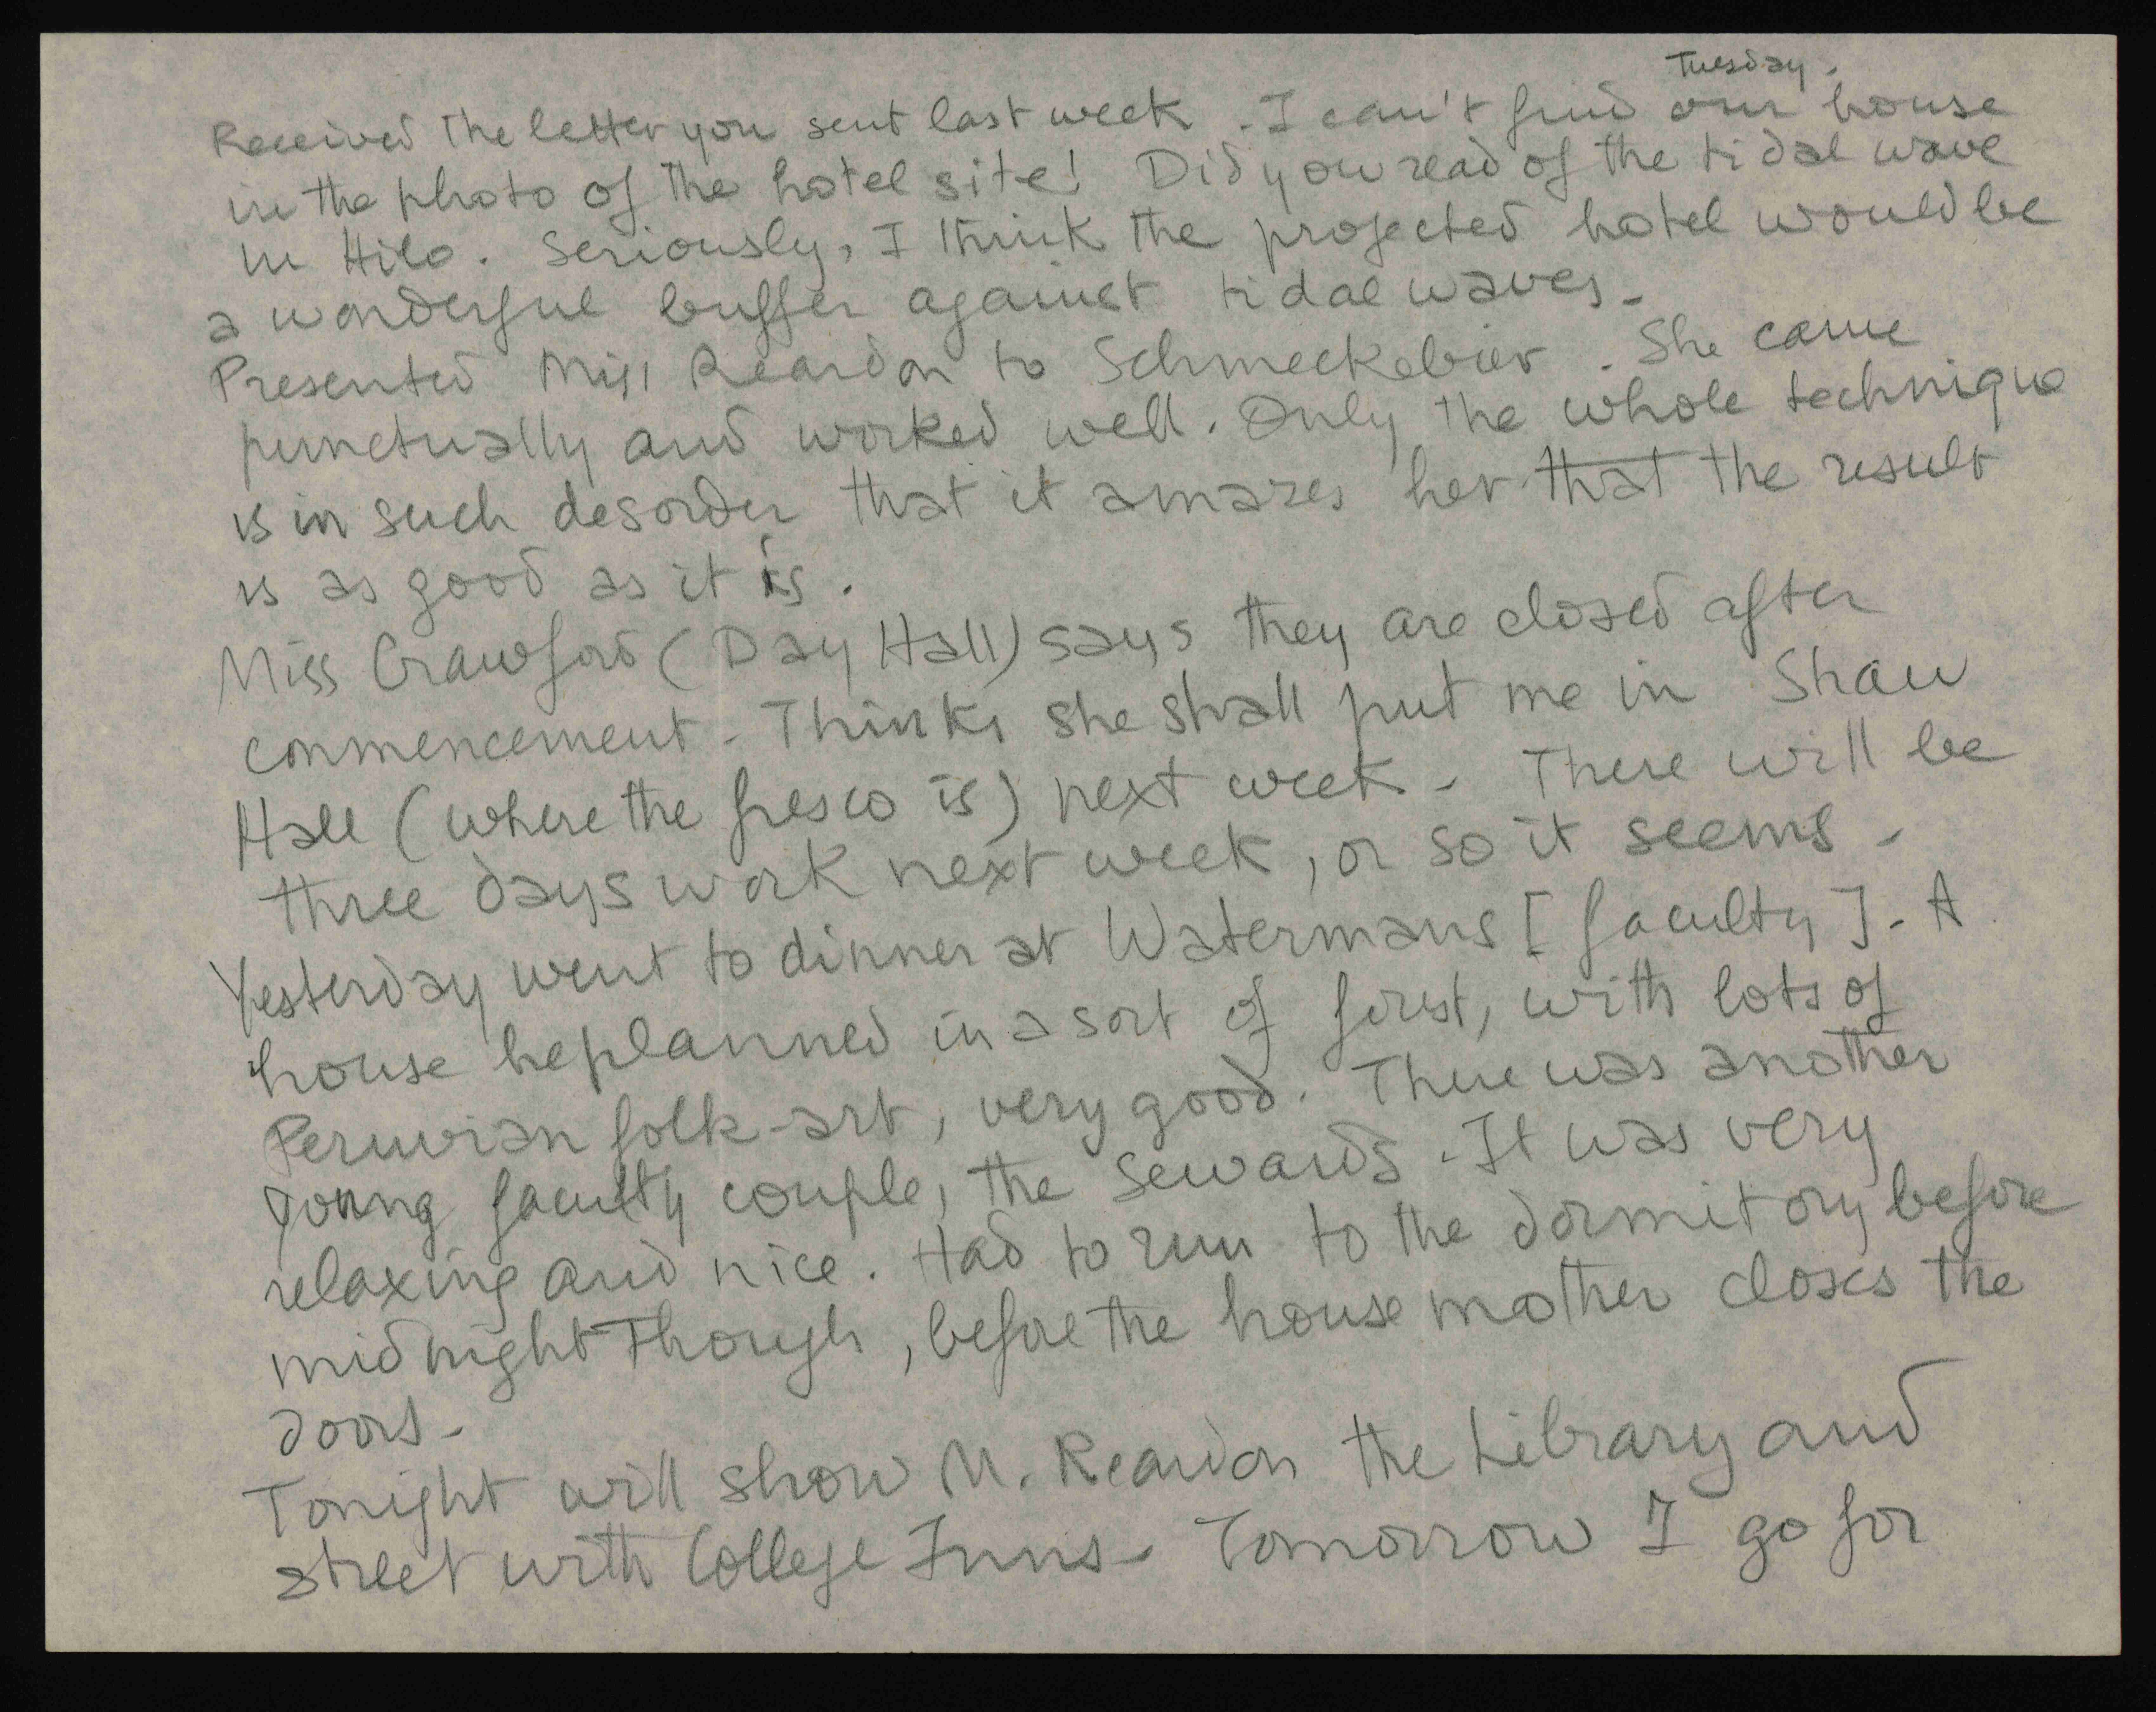 Tuesday.
Received the letter you sent last week. I can't find our house
in the photo of the hotel site! Did you read of the tidal wave
in Hilo. Seriously, I think the projected hotel would be
a wonderful buffer against tidal waves.
Presented Miss Reardon to Schmeckebier. She came
punctually and worked well. Only the whole technique
is in such desorder that it amazes her that the result
is as good as it is.
Miss Crawford (Day Hall) says they are closed after
conmencement. Thinks she shall put me in Shaw
Hall (where the fresco is) next week. There will be
three days work next week, or so it seems.
Yesterday went to dinner at Watermans [faculty]. A
house he planned in a sort of forest, with lots of
Peruvian folk-art, very good. There was another
young faculty couple, the Sewards. It was very
relaxing and nice. Had to run to the dormitory before
midnight though, before the house mother closes the
doors.
Tonight will show M. Reardon the Library and
street with College Inns. Tomorrow I go for